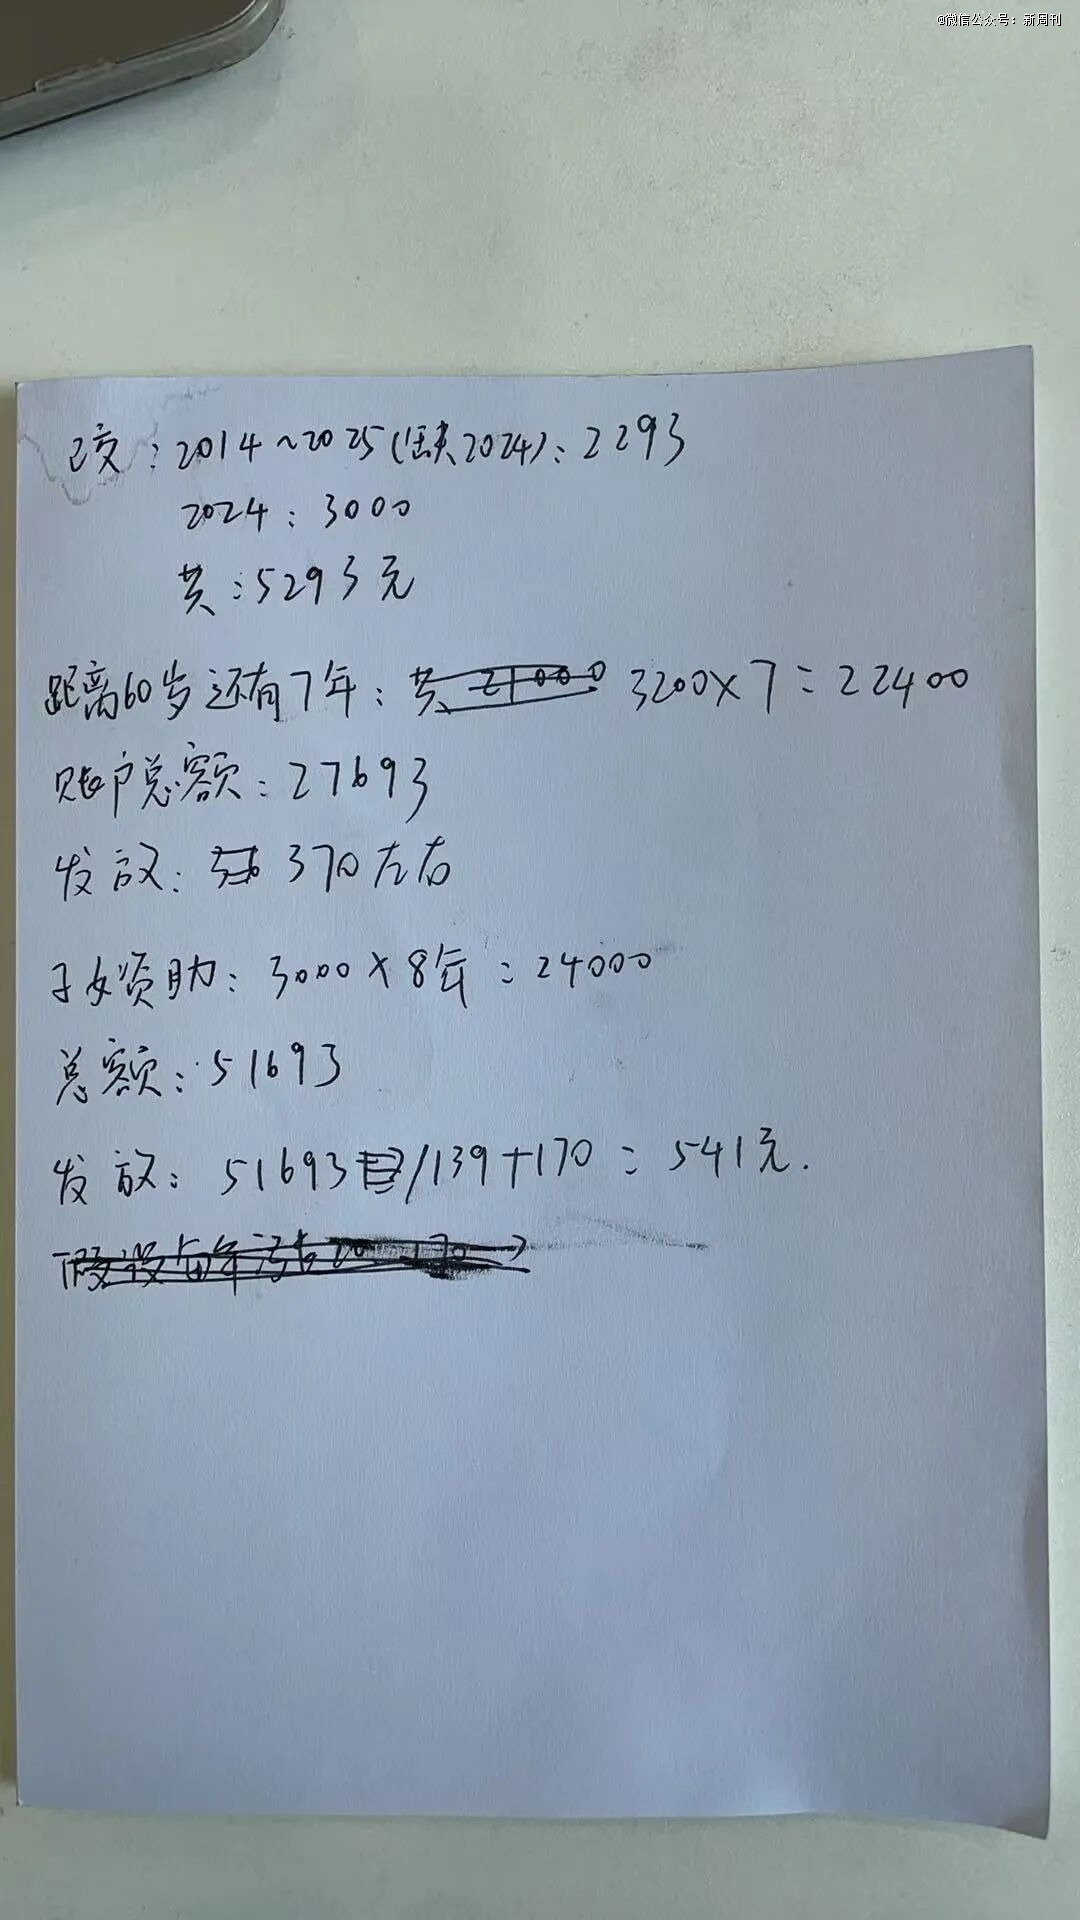 @微信公众号：新周刊
已交：2014~2025(缺2024)：2293
2024：3000
共：5293元
距离60岁还有7年：共 21000 3200×7=22400
账户总额：27693
发放：370左右
子女资助：3000×8年=24000
总额：51693
发放：51693/139+170=541元.
假设每年涨